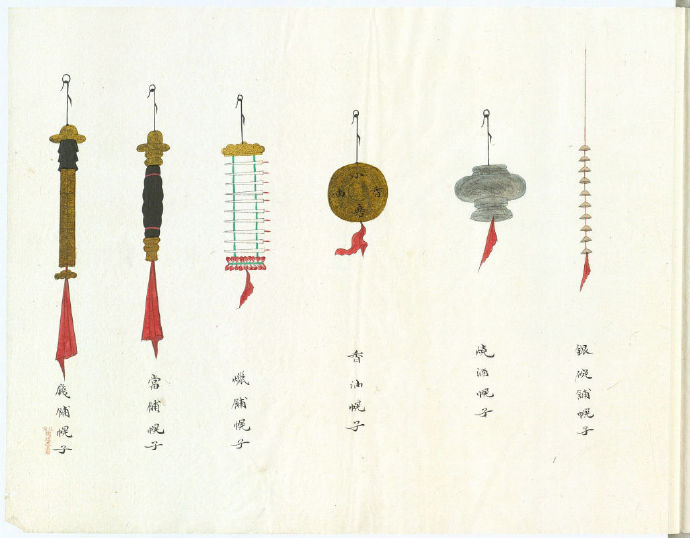 銀碇鋪幌子
燒酒幌子
香油幌子
小
香
磨
油
蠟鋪幌子
當鋪幌子
錢鋪幌子